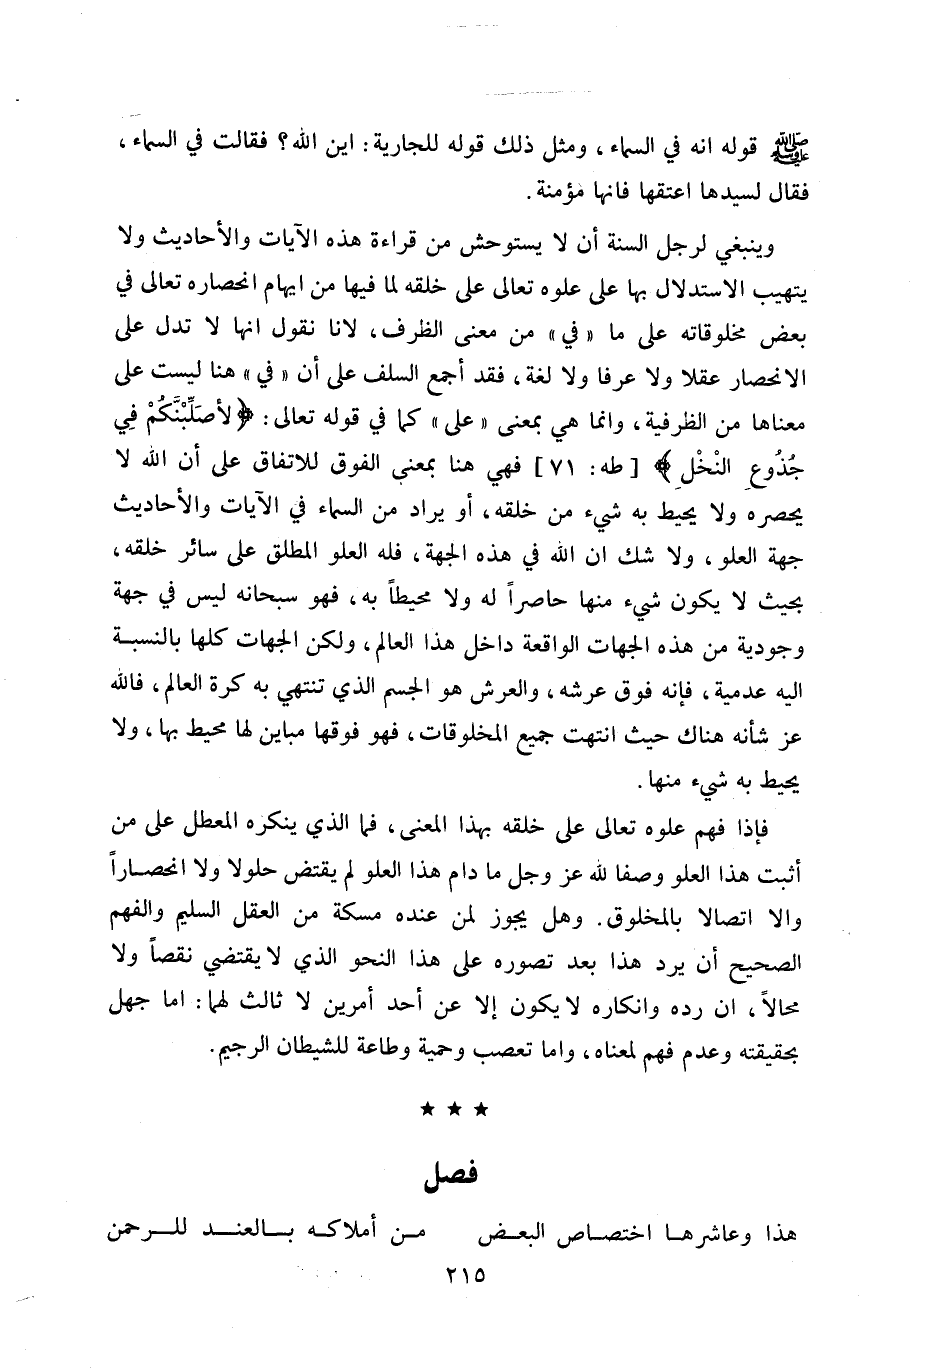 ﷺ قوله انه في السماء ، ومثل ذلك قوله للجارية : اين الله ؟ فقالت في السماء ،
فقال لسيدها اعتقها فانها مؤمنة .
وينبغي لرجل السنة أن لا يستوحش من قراءة هذه الآيات والأحاديث ولا
يتهيب الاستدلال بها على علوه تعالى على خلقه لما فيها من ايهام انحصاره تعالى في
بعض مخلوقاته على ما « في » من معنى الظرف ، لانا نقول انها لا تدل على
الانحصار عقلا ولا عرفا ولا لغة ، فقد أجمع السلف على أن « في » هنا ليست على
معناها من الظرفية ، وانما هي بمعنى « على » كما في قوله تعالى : ﴿ لأصَلِّبَنَّكُمْ فِي
جُذُوعِ النْخْلِ ﴾ [ طه : ٧١ ] فهي هنا بمعنى الفوق للاتفاق على أن الله لا
يحصره ولا يحيط به شيء من خلقه ، أو يراد من السماء في الآيات والأحاديث
جهة العلو ، ولا شك ان الله في هذه الجهة ، فله العلو المطلق على سائر خلقه ،
بحيث لا يكون شيء منها حاصراً له ولا محيطاً به ، فهو سبحانه ليس في جهة
وجودية من هذه الجهات الواقعة داخل هذا العالم ، ولكن الجهات كلها بالنسبة
اليه عدمية ، فإنه فوق عرشه ، والعرش هو الجسم الذي تنتهي به كرة العالم ، فالله
عز شأنه هناك حيث انتهت جميع المخلوقات ، فهو فوقها مباين لها محيط بها ، ولا
يحيط به شيء منها .
فإذا فهم علوه تعالى على خلقه بهذا المعنى ، فما الذي ينكره المعطل على من
أثبت هذا العلو وصفا لله عز وجل ما دام هذا العلو لم يقتض حلولا ولا انحصاراً
والا اتصالا بالمخلوق . وهل يجوز لمن عنده مسكة من العقل السليم والفهم
الصحيح أن يرد هذا بعد تصوره على هذا النحو الذي لا يقتضي نقصاً ولا
محالاً ، ان رده وانكاره لا يكون إلا عن أحد أمرين لا ثالث لهما : اما جهل
بحقيقته وعدم فهم لمعناه ، واما تعصب وحمية وطاعة للشيطان الرجيم .
★ ★ ★
فصل
هذا وعاشرهـا اختصـاص البعـض مـن أملاكـه بـالعنـد للـرحمن
٢١٥